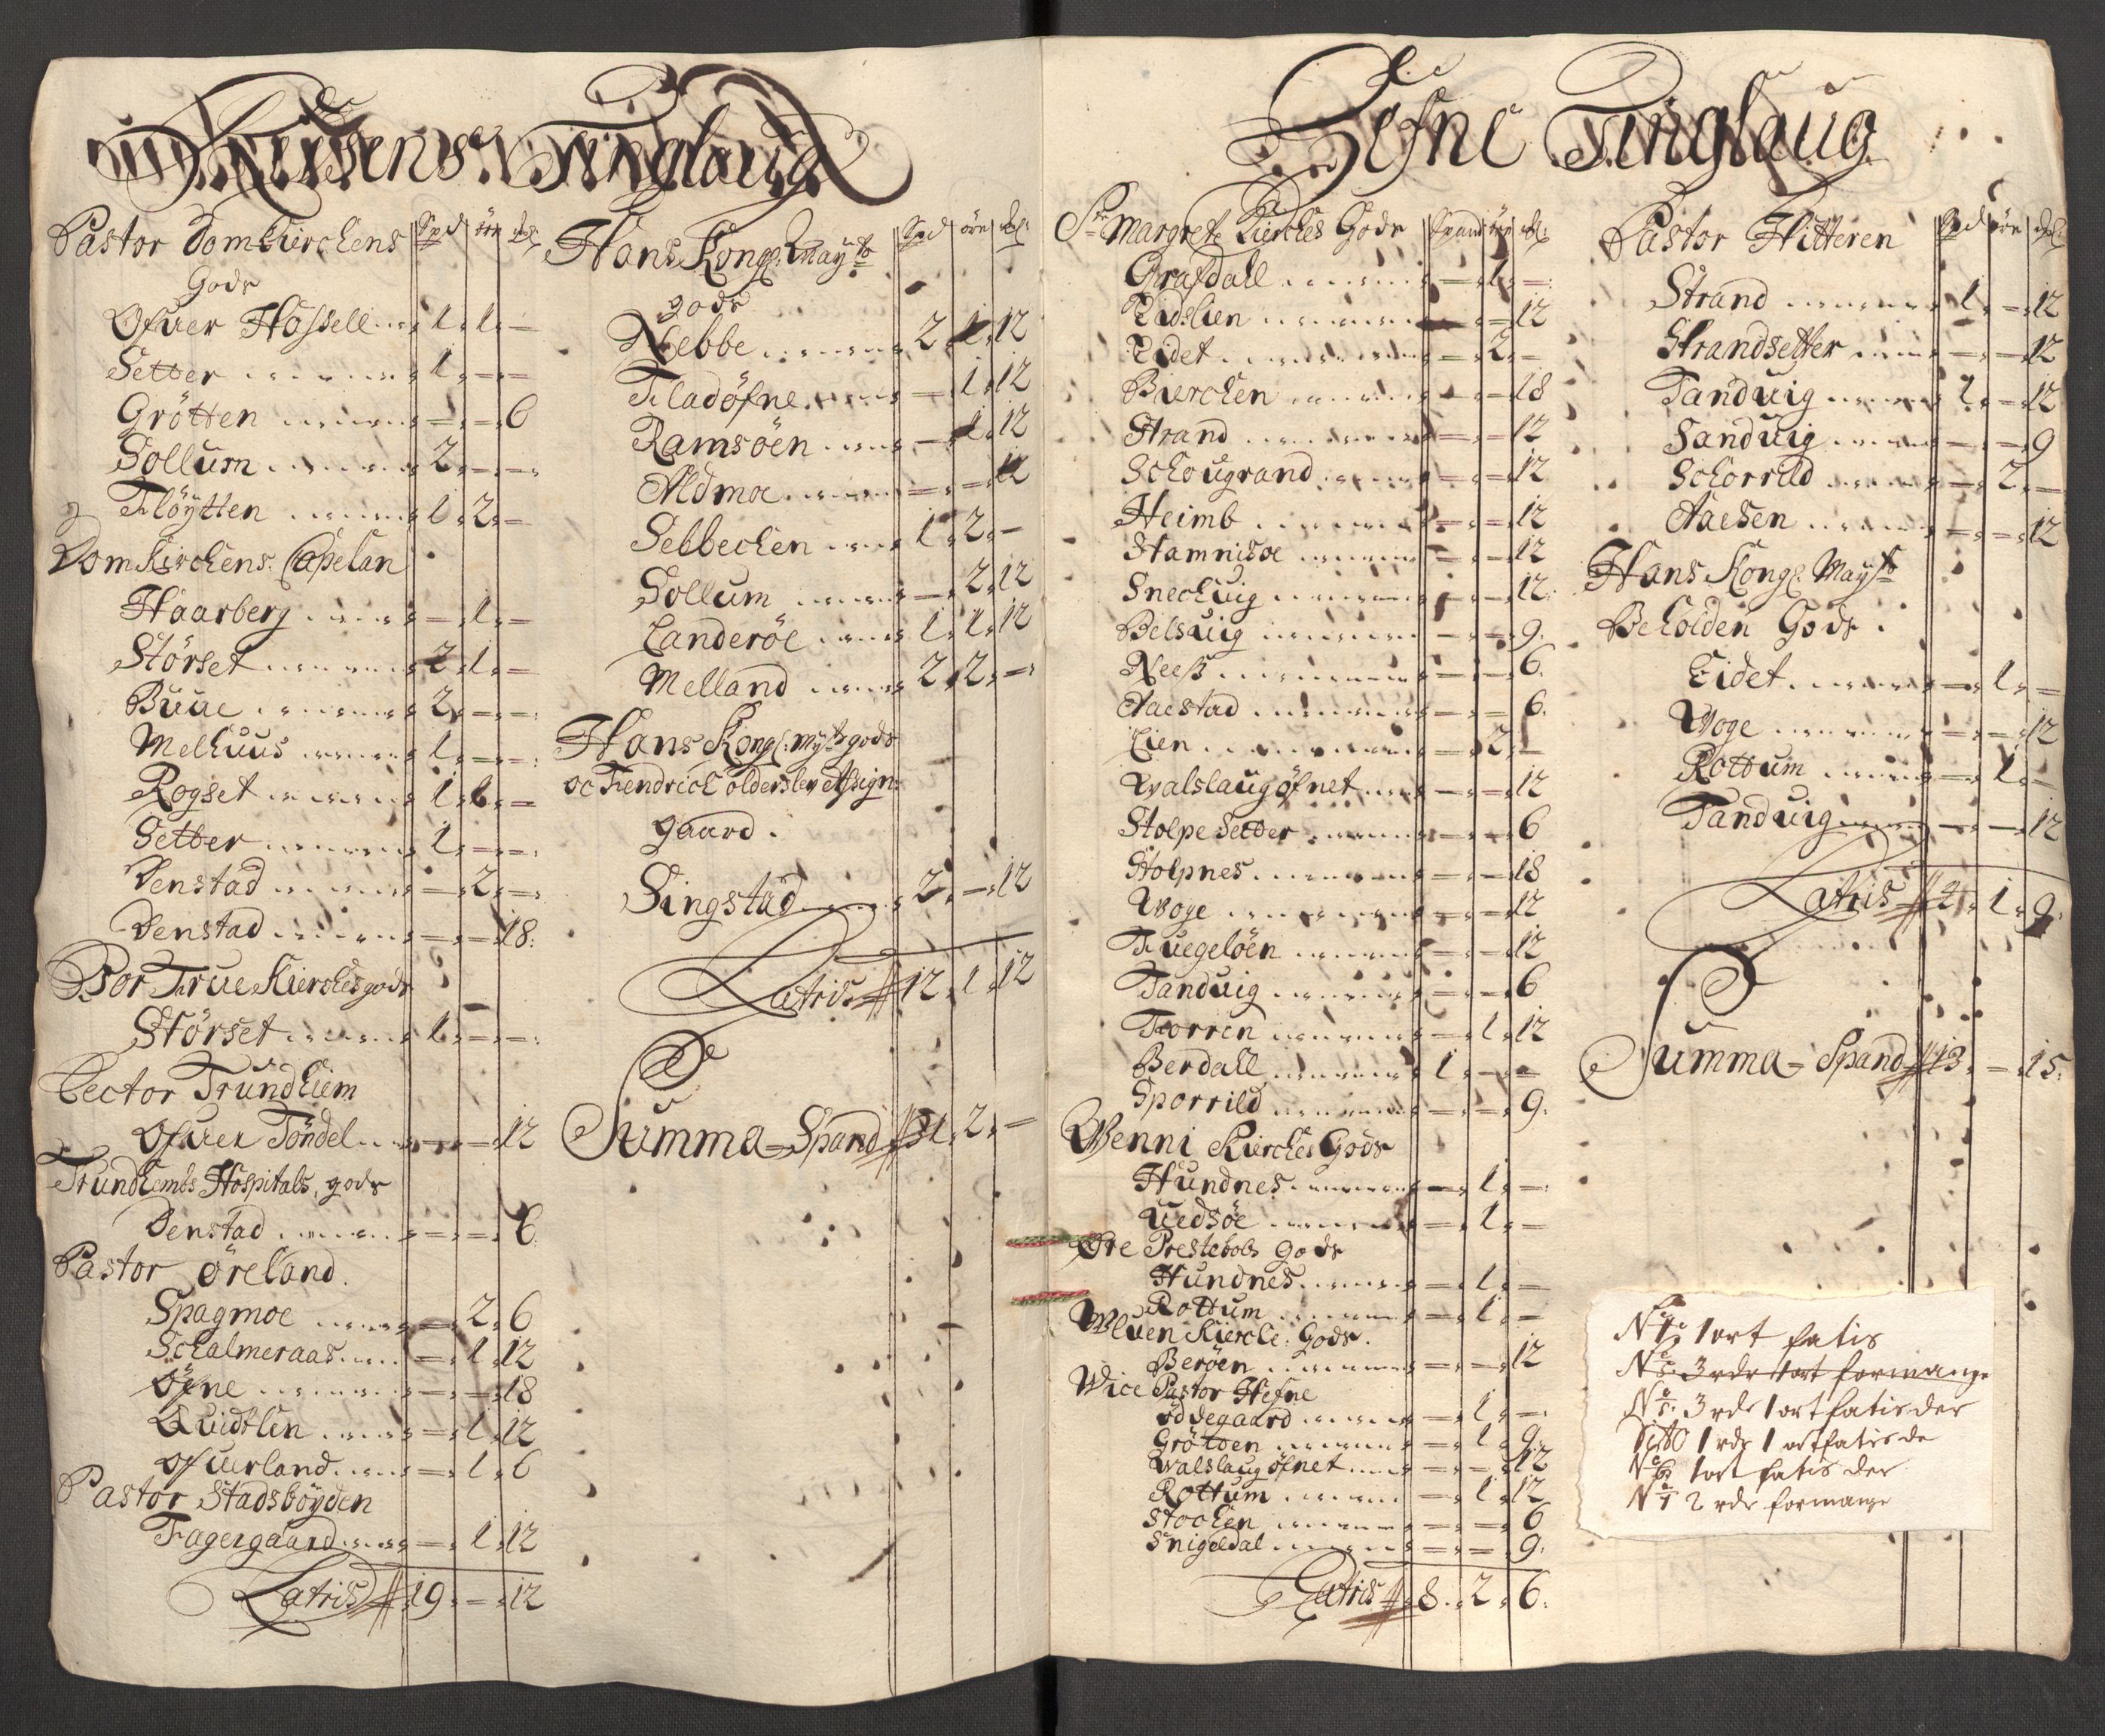 Tinglaug
Pastor Domkirckens Spd ørn
Gods
Ofuer Hossell 1. 1. —
Setter 1. — —
Grötten — — 6
Sollum 2. — —
Flöytten 1. 2. —
DomKirckens Capelan
Haarberg — 1. —
Störset 2. 1. —
Buue 2. — —
Melhuus 1. — —
Rogset 1. 1. —
Setter 1. — —
Denstad — 2. —
Denstad — — 18.
Vor Frue Kierckes gods
Störset 1. — —
Lector Trundhiem
Ofuer Töndel — — 12
Trundhembs Hospitals gods
Denstad — — 6
Pastor Öreland.
Spagmoe — 2. 6
Schalmeraas — 1. 12
Öfne — — 18
Quidtlen — 1. 12
Ofuerland — 1. 6
Pastor Stadsböyden
Fagergaard — 1. 12
Latris 19. — 12
Hans Kongl. Mayts Spd ørn
gods
Nebbe 2. 1. 12
Fladöfne — 1. 12
Ramsöen — 1. 12
Aldmoe — — 12
Sebbechen 1. 2. —
Sollum — 2. 12
Landeröe 1. 1. 12
Melland 2. 2. —
Hans Kongl. Mayts gods
oc Fendrich olderslev Assign:
gaard.
Singstad 2. — 12
Latris 12. 1. 12
Summa — Spand 31. 2. —
Hefne Tinglaug
St Margrete Kierckes Gods Spand ørn
Grafdall — 1. —
Eidslien — — 12
Eidet — 2. —
Biercken — — 18
Strand — — 12
Schougrand — — 12
Heimb — — 12
Stamnisoe — — 12
Snechuig — — 12
Belsuig — — 9.
Neeß — — 6.
Aaestad — — 6.
Lien — 2. —
Walslaugöfnet — — 12
Stolpe Setter — — 6
Stolpnes — — 18
Woge — — 12
Fuegelöen — — 12
Tanduig — — 6
Forren — 1. 12
Berdall 1. — —
Sporrild — — 9.
Wenni Kierckes Gods
Hundnes — 1. —
Uedsöe — 1. —
Øre Prestebols gods
Hundnes — 1. —
Rottum — 1. —
Wluen Kiercke Gods.
Beröen — — 12
Wice Pastor Hefne
Öddegaard — 1. —
Grötten — 1. 9.
Walslaugöfnet — — 12
Rottum — 1. 12
Stocken — — 6
Snigeldal — — 9.
Latris 8. 2. 6.
Pastor Hitteren Spd ørn
Strand 1. — 12
Strandsetter — — 12
Tanduig 1. — 12
Sanduig — — 9
Schorrild — 2. —
Aaesen — — 12
Hans Kongl. Mayts
Beholden Gods.
Eidet — 1. —
Woge — — 12
Rottum — 1. —
Tanduig — — 12
Latris 4. 1. 9.
Summa — Spand 13. — 15.
1 ort fatis
3 rdr 1 ort formange
3 rdr 1 ort fatis der
1 rdr 1 ort fatis de
1 ort fatis der
2 rdr formange